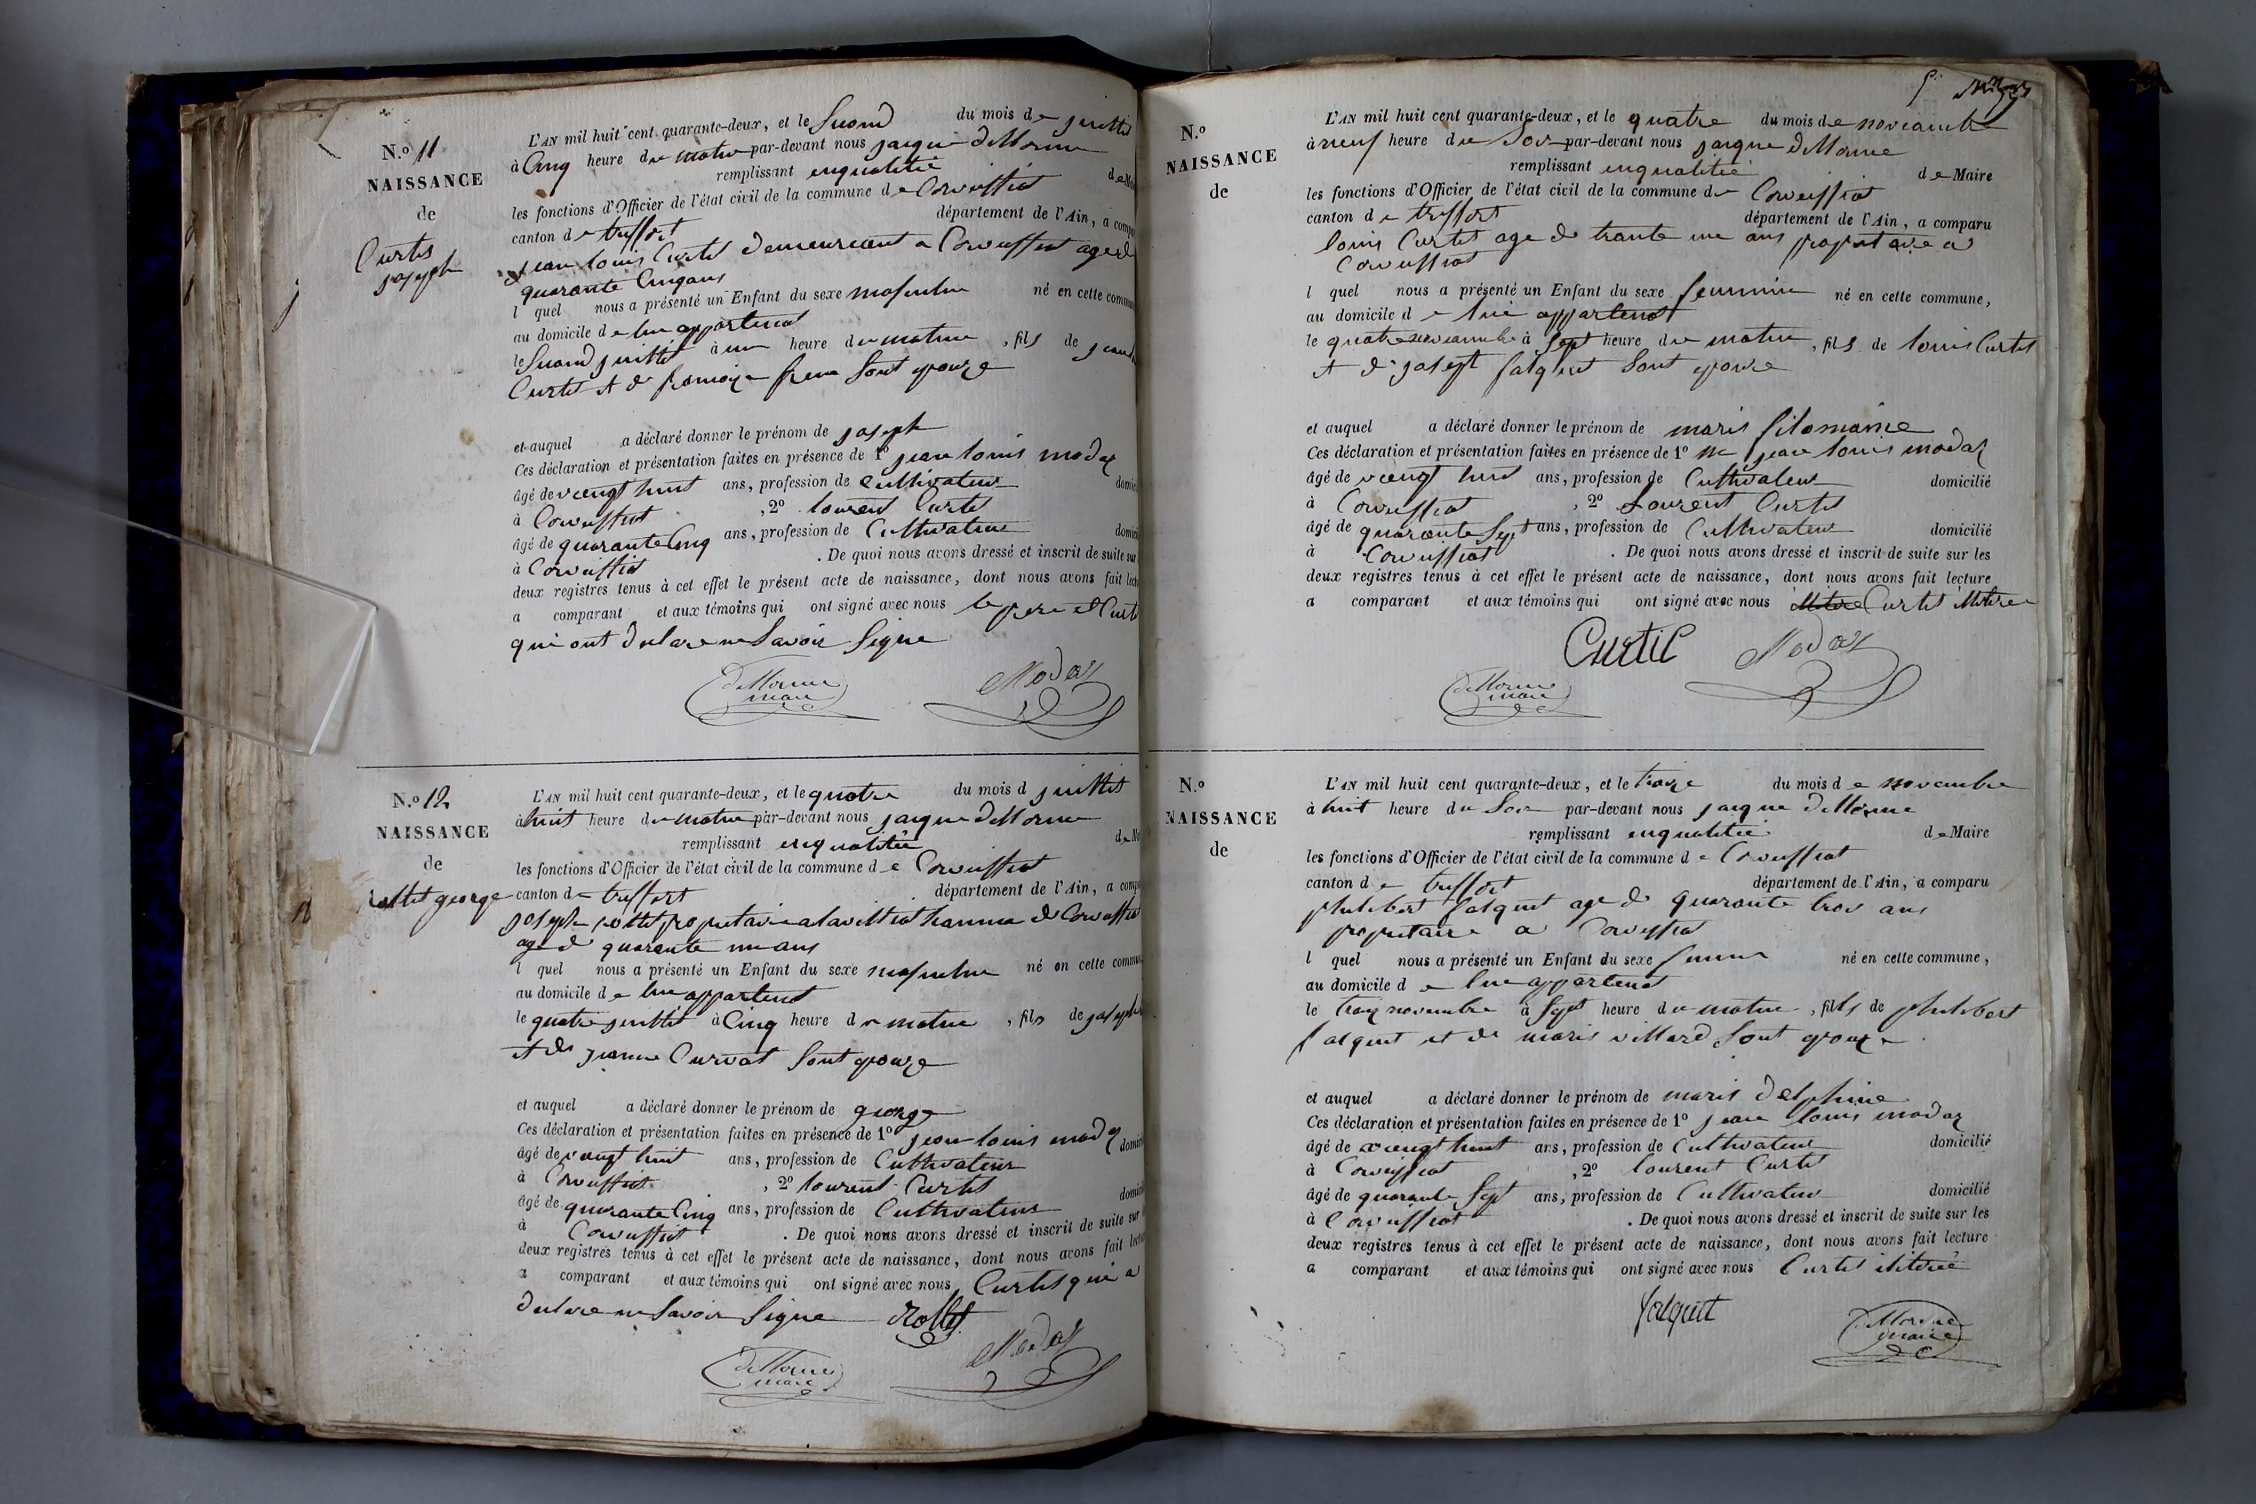 N.o 11
NAISSANCE
de
Curtis
joseph
L'AN mil huit cent quarante-deux, et le Suond du mois de juillet
à Cinq heure du matin par-devant nous jaque deMorme
remplissant enqualitié de
les fonctions d'Officier de l'état civil de la commune de Corveissiat
canton de treffort département de l'Ain, a
jean louis Curtis demeurant a Corveissiat age de
quarante Cinqans
l quel nous a présenté un Enfant du sexe masculin né en cette
au domicile de lui appartenot
le Suond juillet à une heure du matin, fils de jean
Curtis et de fransoize frere sont epouze
et auquel a déclaré donner le prénom de joseph
Ces déclaration et présentation faites en présence de 1o jean louis modas
âgé de vengt huit ans, profession de Cultivateur
à Corveissiat, 2o laurent Curtis
âgé de quarante Cinq ans, profession de Cultivateur
à Corveissiat. De quoi nous avons dressé et inscrit de suite sur
deux registres tenus à cet effet le présent acte de naissance, dont nous avons fait
a comparant et aux témoins qui ont signé avec nous le pere et Curtis
qui ont declare ne Savoir Signe
deMorme
maire
Modas
N.o 12
NAISSANCE
de
rollet george
L'AN mil huit cent quarante-deux, et le quatre du mois d juillet
à huit heure du matin par-devant nous jaque deMorme
remplissant enqualitié de
les fonctions d'Officier de l'état civil de la commune de Corveissiat
canton de treffort département de l'Ain, a
joseph rollet propriétaire a de Corveissiat
age de quarante un ans
l quel nous a présenté un Enfant du sexe masculin né en cette
au domicile de lui appartenot
le quatre juillet à Cinq heure du matin, fils de joseph
et de jeanne Curvat sont epouze
et auquel a déclaré donner le prénom de george
Ces déclaration et présentation faites en présence de 1o jean louis modas
âgé de vengt huit ans, profession de Cultivateur
à Corveissiat, 2o laurent Curtis
âgé de quarante Cinq ans, profession de Cultivateur
à Corveissiat. De quoi nous avons dressé et inscrit de suite sur
deux registres tenus à cet effet le présent acte de naissance, dont nous avons fait
a comparant et aux témoins qui ont signé avec nous Curtis qui a
declare ne Savoir Signe Rollet
Modas
deMorme
maire
N.o
NAISSANCE
de
L'AN mil huit cent quarante-deux, et le quatre du mois de noveambre
à neuf heure du Soir par-devant nous jaque deMorme
remplissant enqualitié de Maire
les fonctions d'Officier de l'état civil de la commune de Corveissiat
canton de treffort département de l'Ain, a comparu
louis Curtis age de trante un ans propritaire a
Corveissiat
l quel nous a présenté un Enfant du sexe feminin né en cette commune,
au domicile de lui appartenot
le quatre noveambre à Sept heure du matin, fils de louis Curtis
et de josept falquet sont epouze
et auquel a déclaré donner le prénom de marie filomaine
Ces déclaration et présentation faites en présence de 1o jean louis modas
âgé de vengt huit ans, profession de Cultivateur domicilié
à Corveissiat, 2o Laurent Curtis
âgé de quarante Sept ans, profession de Cultivateur domicilié
à Corveissiat. De quoi nous avons dressé et inscrit de suite sur les
deux registres tenus à cet effet le présent acte de naissance, dont nous avons fait lecture
a comparant et aux témoins qui ont signé avec nous Curtis
Curtil Modas
deMorme
maire
N.o
NAISSANCE
de
L'AN mil huit cent quarante-deux, et le traize du mois de novembre
à huit heure du Soir par-devant nous jaque deMorme
remplissant enqualitié de Maire
les fonctions d'Officier de l'état civil de la commune de Corveissiat
canton de treffort département de l'Ain, a comparu
philibert falquet age de quarante trois ans
propritaire a Corveissiat
l quel nous a présenté un Enfant du sexe né en cette commune,
au domicile de lui appartenot
le traiz novembre à Sept heure du matin, fils de philibert
falquet et de marie villard Sont epouze
et auquel a déclaré donner le prénom de marie delphine
Ces déclaration et présentation faites en présence de 1o jean louis modas
âgé de vengt huit ans, profession de Cultivateur domicilié
à Corveissiat, 2o laurent Curtis
âgé de quarante Sept ans, profession de Cultivateur domicilié
à Corveissiat. De quoi nous avons dressé et inscrit de suite sur les
deux registres tenus à cet effet le présent acte de naissance, dont nous avons fait lecture
a comparant et aux témoins qui ont signé avec nous Curtis
falquet
deMorme
maire